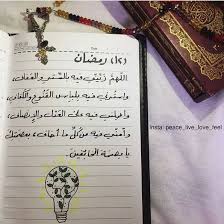 (١٢) رمضان
اللهم زيني فيه بالستر والعفاف،
واسترني فيه بلباس القنوع والكفاف،
واحملني فيه على العدل والإنصاف،
وآمني فيه من كل ما أخاف، بعصمتك
يا عصمة الخائفين
Insta:peace_live_love_feel